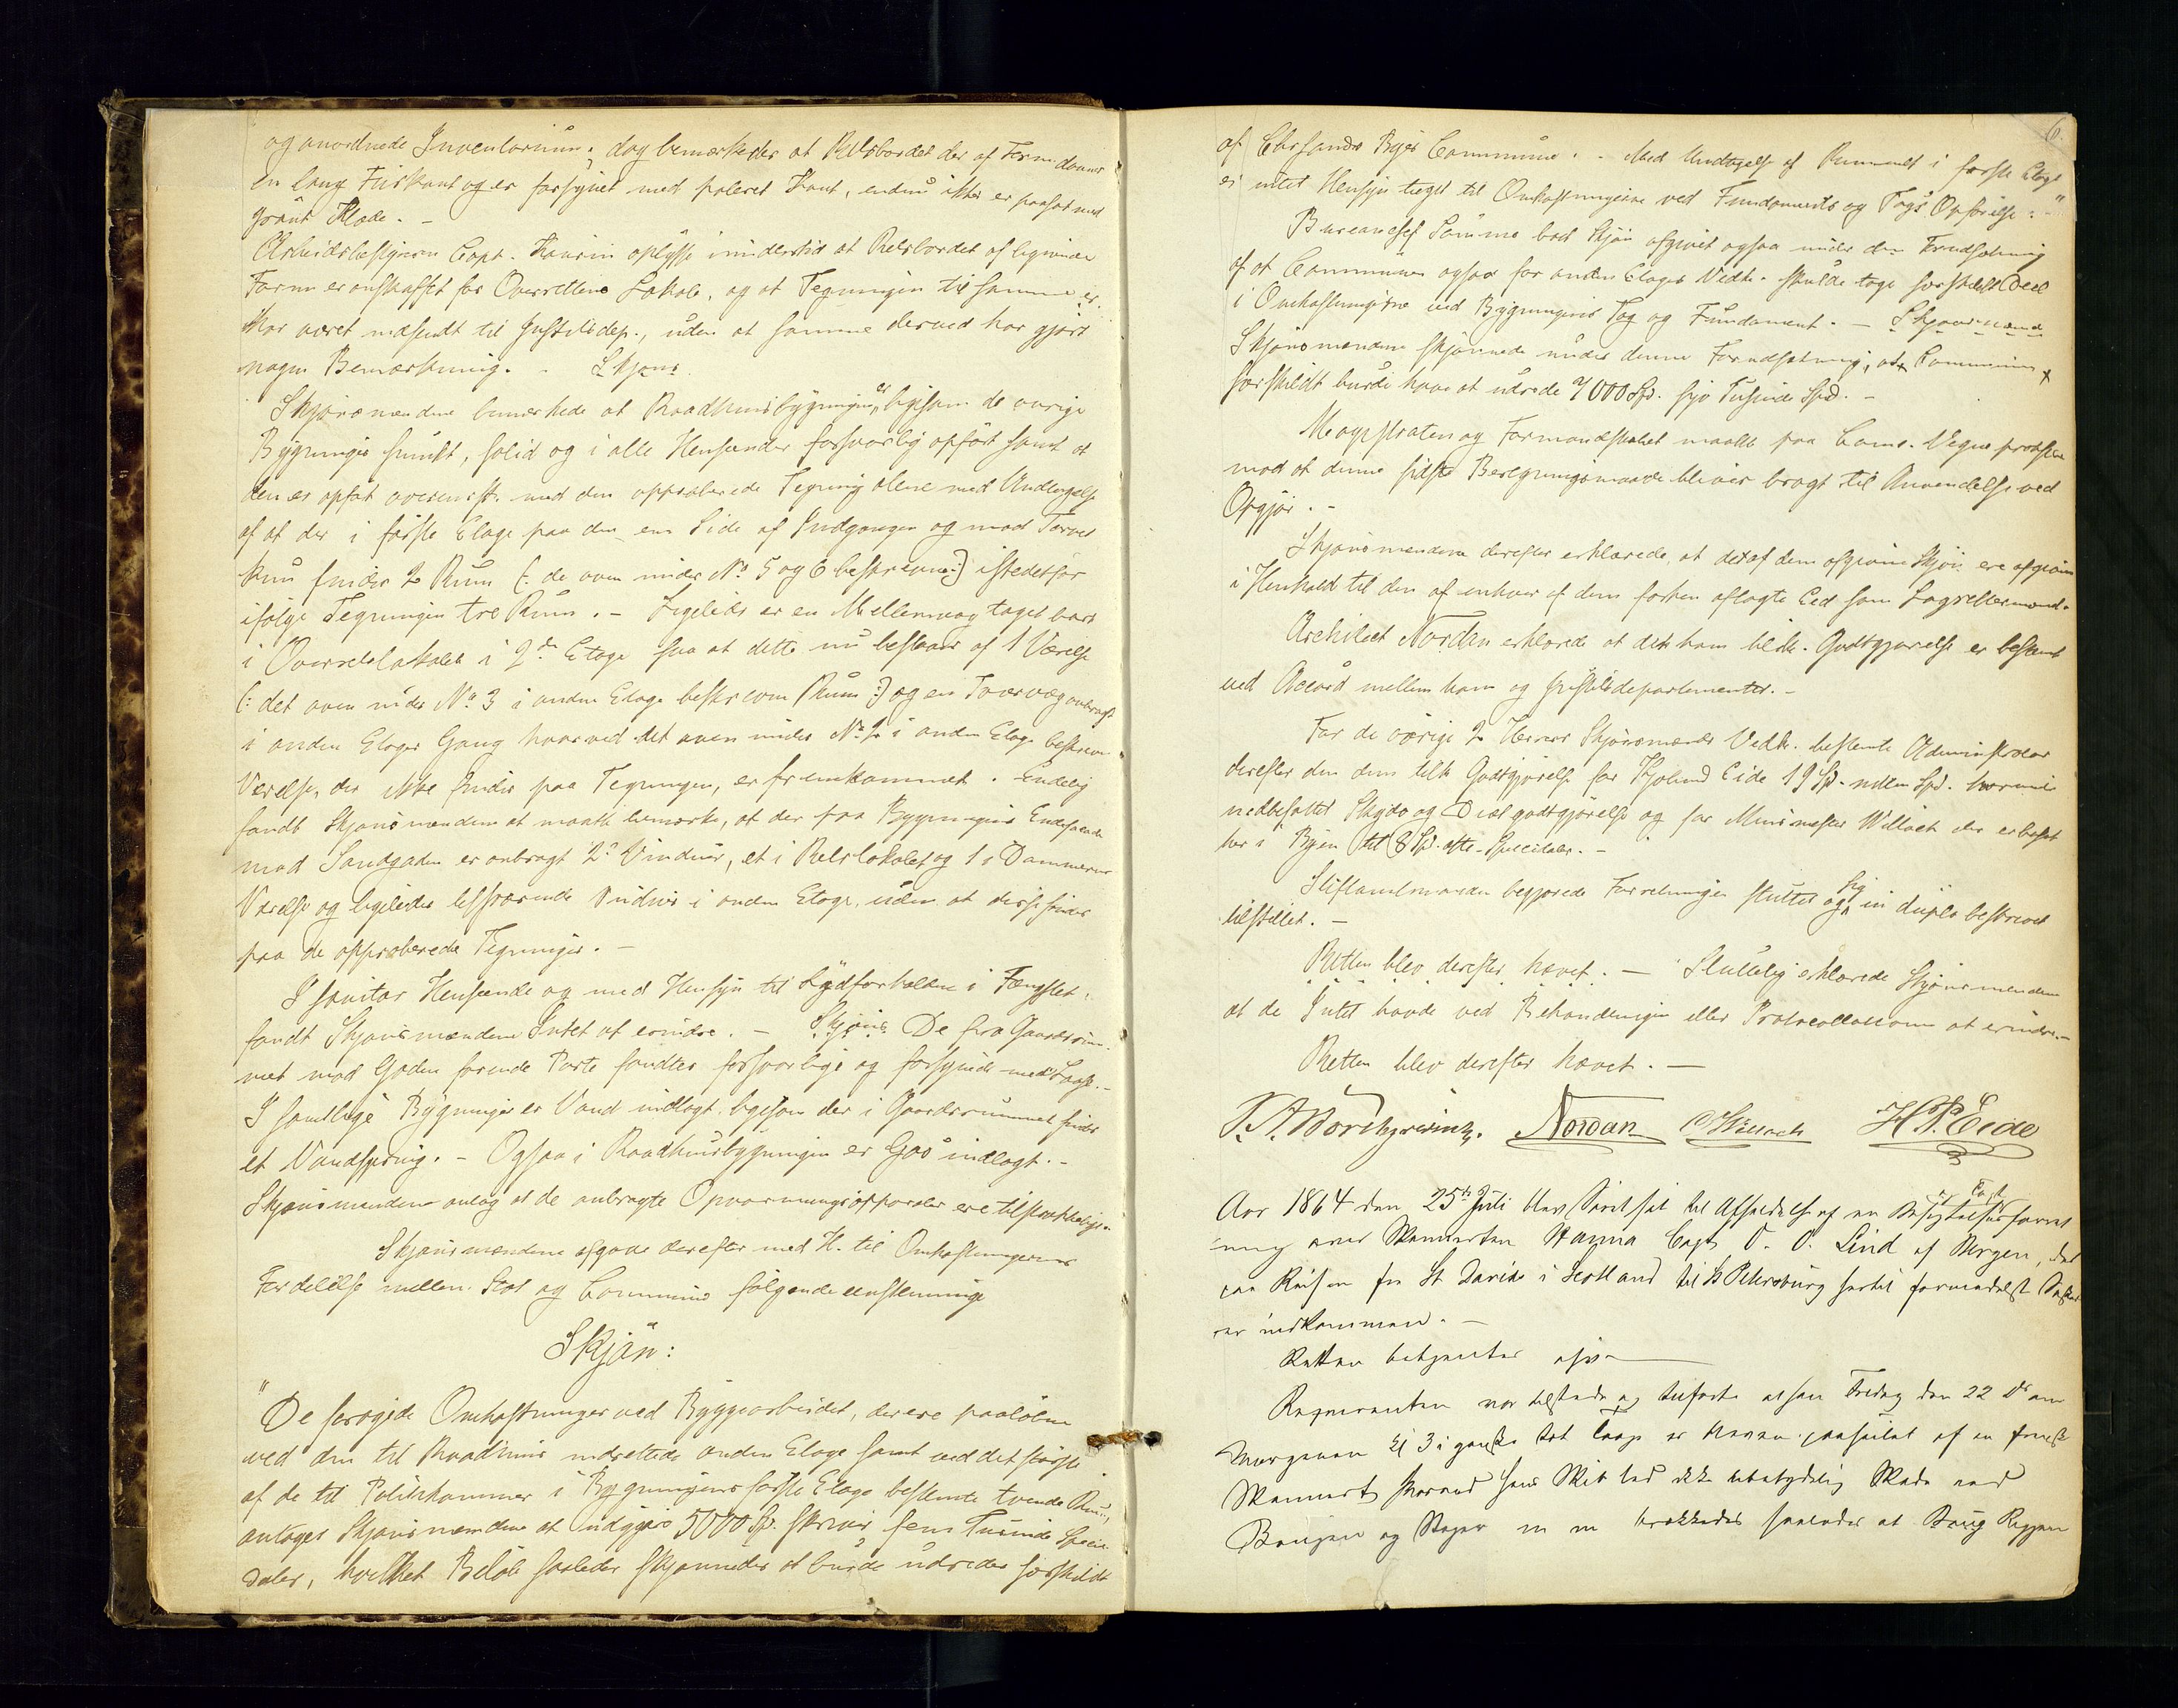 og anordnede Inventarium; dog bemærkedes at Retsbordet der af Form danner
en lang Firkant og er forsynet med poleret Kant, endnu ikke er paasat med
grønt Klæde. -
Arbeidsbestyreren Capt. oplyste imidlertid at Retsbordet af lignende
Form er anskaffet for Overrettens Lokale, og at Tegningen til samme
har været indsendt til Justitsdep., uden at samme derved har gjort
nogen Bemærkning. - Skjøns.
Skjønsmændene bemærkede at Raadhuusbygningen er ligesom de øvrige
Bygninger smukt, solid og i alle Henseender forsvarlig opført samt at
den er opført overensst. med den approberede Tegning alene med Undtagelse
af at der i første Etage paa den ene Side af Indgangen og mod Torvet
kun findes 2 Rum (: de oven under No 5 og 6 beskrevne :) istedetfor
ifølge Tegningen tre Rum. - Ligeledes er en Mellemvæg taget bort
i Overretslokalet i 2den Etage saa at dette nu bestaar af 1 Værelse
(: det oven under No 3 i anden Etage beskrevne Rum :) og en Tværvæg anbragt
i anden Etages Gang hvorved det oven under No 2 i anden Etage beskrevne
Værelse, der ikke findes paa Tegningen, er fremkommet. Endelig
fandt Skjønsmændene at maatte bemærke, at der paa Bygningens Endefacade
mod Sandgaden er anbragt 2de Vinduer, et i Retslokalet og 1 i Dommerens
Værelse og ligeledes tilsvarende Vinduer i anden Etage, uden at disse findes
paa de approberede Tegninger. -
I sanitær Henseende og med Hensyn til Lydforholdene i Fængslet
fandt Skjønsmændene Intet at erindre. - Skjøns. De fra Gaardsrum-
met mod Gaden førende Porte fandtes forsvarlige og forsynede med Laase. -
I samtlige Bygninger er Vand indlagt ligesom der i Gaardsrummet findes
et Vandspring. - Ogsaa i Raadhuusbygningen er Gas indlagt. -
Skjønsmændene antog at de anbragte Opvarmningsapparater ere tilstrækkelige.
Skjønsmændene afgave derefter med H. til Omkostningernes
Fordeling mellem Stat og Commune følgende eenstemmige
Skjøn:
"De forøgede Omkostninger ved Byggearbeidet, der ere paaløbne
ved den til Raadhuus indrettede anden Etage samt ved det største
af de til Politikammer i Bygningens første Etage bestemte tvende Rum,
antoges Skjønsmændene at udgjøre 5000 Spd. skriver fem Tusinde Specie-
daler, hvilket Beløb saaledes skjønnedes at burde udredes særskildt
6.
af Chrsands Byes Commune. - Med Undtagelse af Rummet i første Etage
er intet Hensyn taget til Omkostningerne ved Fundaments og Tags Opførelse. -"
Bureauchef bad Skjøn afgivet ogsaa under den Forudsætning
af at Communen ogsaa for anden Etages Vedk. skulde tage særskildt Deel
i Omkostningerne ved Bygningens Tag og Fundament. -
Skjønsmændene skjønnede under denne Forudsætning, at Communen
særskildt burde have at udrede 7000 Spd. syv Tusinde Spd. -
Magistraten og Formandskabet maatte paa Com. Vegne protestere
mod at denne sidste Beregningsmaade bliver bragt til Anvendelse ved
Opgjør. -
Skjønsmændene derefter erklærede, at det af dem afgivne Skjøn ere afgivne
i Henhold til den af enhver af dem forhen aflagte Eed som Lagrettesmænd.
Architect Nordan erklærede at den ham tilk. Godtgjørelse er bestemt
ved Accord mellem ham og Justitsdepartementet. -
For de øvrige 2 Herrer Skjønsmænds Vedk. bestemte Administrator
derefter den dem tilk. Godtgjørelse for Eide 19 Spd. nitten Spd. hvorunder
indbefattet Skyds og Diætgodtgjørelse og for Muurmester Willoch der er bosat
her i Byen til 8 Spd. otte Speciedaler. -
Stiftamtmanden begjærede Forretningen sluttet og sig in duplo beskrevet
tilstillet. -
Retten blev derefter hævet. - Sluttelig erklærede Skjønsmændene
at de Intet havde ved Behandlingen eller Protocollationen at erindre. -
Retten blev derefter hævet. -
Nordan Willoch H P Eide
Aar 1864 den 25de Juli blev Søret sat til Afholdelse af en Besigtelsesforret-
ning over Skonnerten Hanna Capt O. O. Lind af Bergen, der
paa Reisen fra St Davids i Scotland til St Petersburg hertil formedelst
er indkommen. -
Retten betjentes
Reqvirenten var tilstede og anførte at han Fredag den 22 ds om
Morgenen Kl 3 i ganske tæt Taage er bleven paaseilet af en fransk
Skonnert, hvorved hans Skib led ikke ubetydelig Skade ved
at Baug Reggen